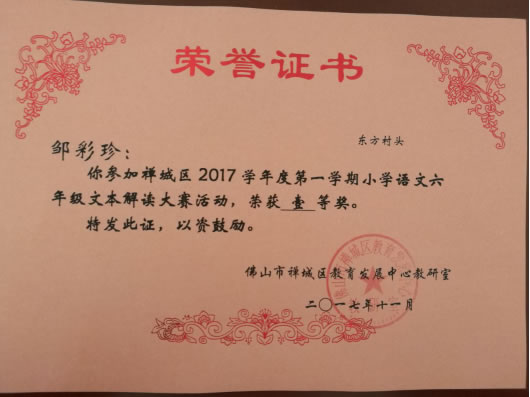 荣誉证书
东方村头
邹彩珍：
你参加禅城区2017学年度第一学期小学语文六
年级文本解读大赛活动，荣获 壹 等奖。
特发此证，以资鼓励。
佛山市禅城区教育发展中心教研室
二〇一七年十一月